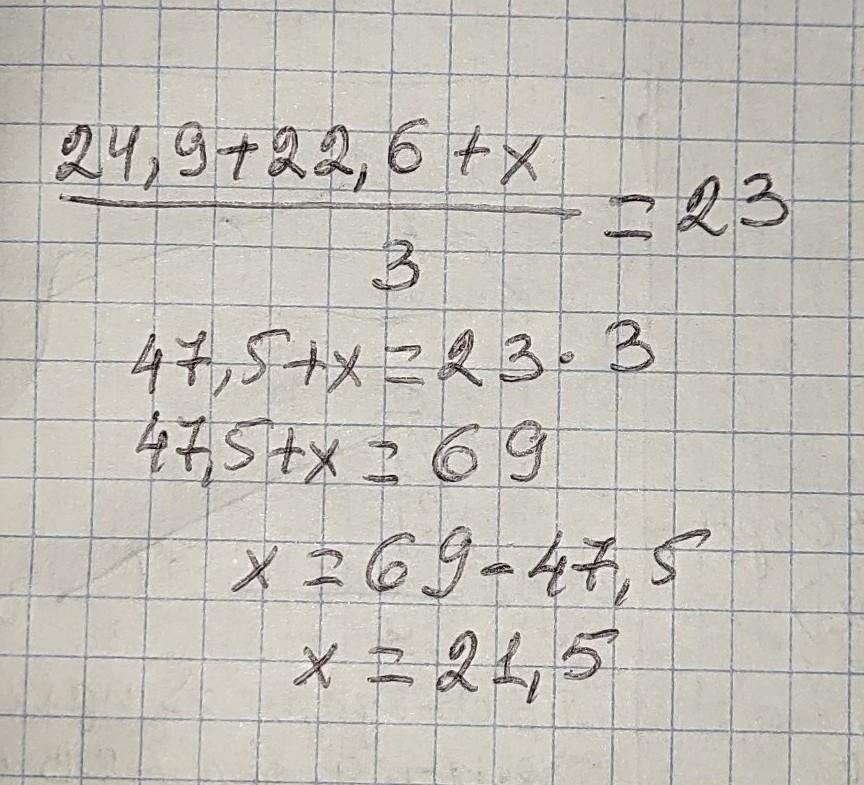 24,9+22,6+x
= 23
3
47,5+x=23·3
47,5+x=69
x=69-47,5
x=21,5